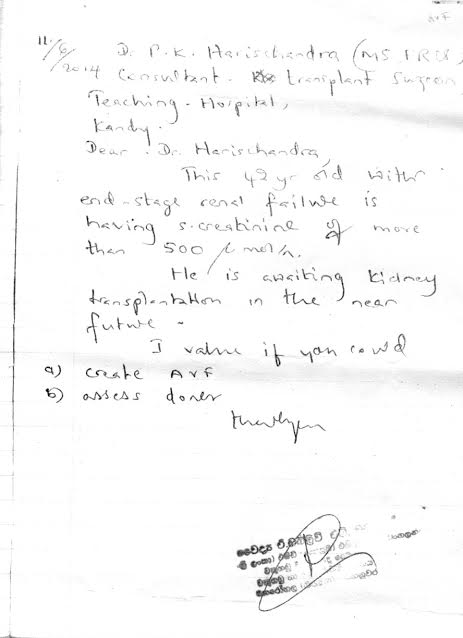 AVF
11/6/2014
Dr. P. K. Harischandra (MS FRCS)
Consultant transplant Surgeon
Teaching - Hospital,
Kandy.
Dear Dr. Harischandra,
This 42 yr old with
end-stage renal failure is
having s. creatinine of more
than 500 μmol/l.
He is awaiting kidney
transplantation in the near
future.
I value if you could
a) create AVF
b) assess donor
Thank you